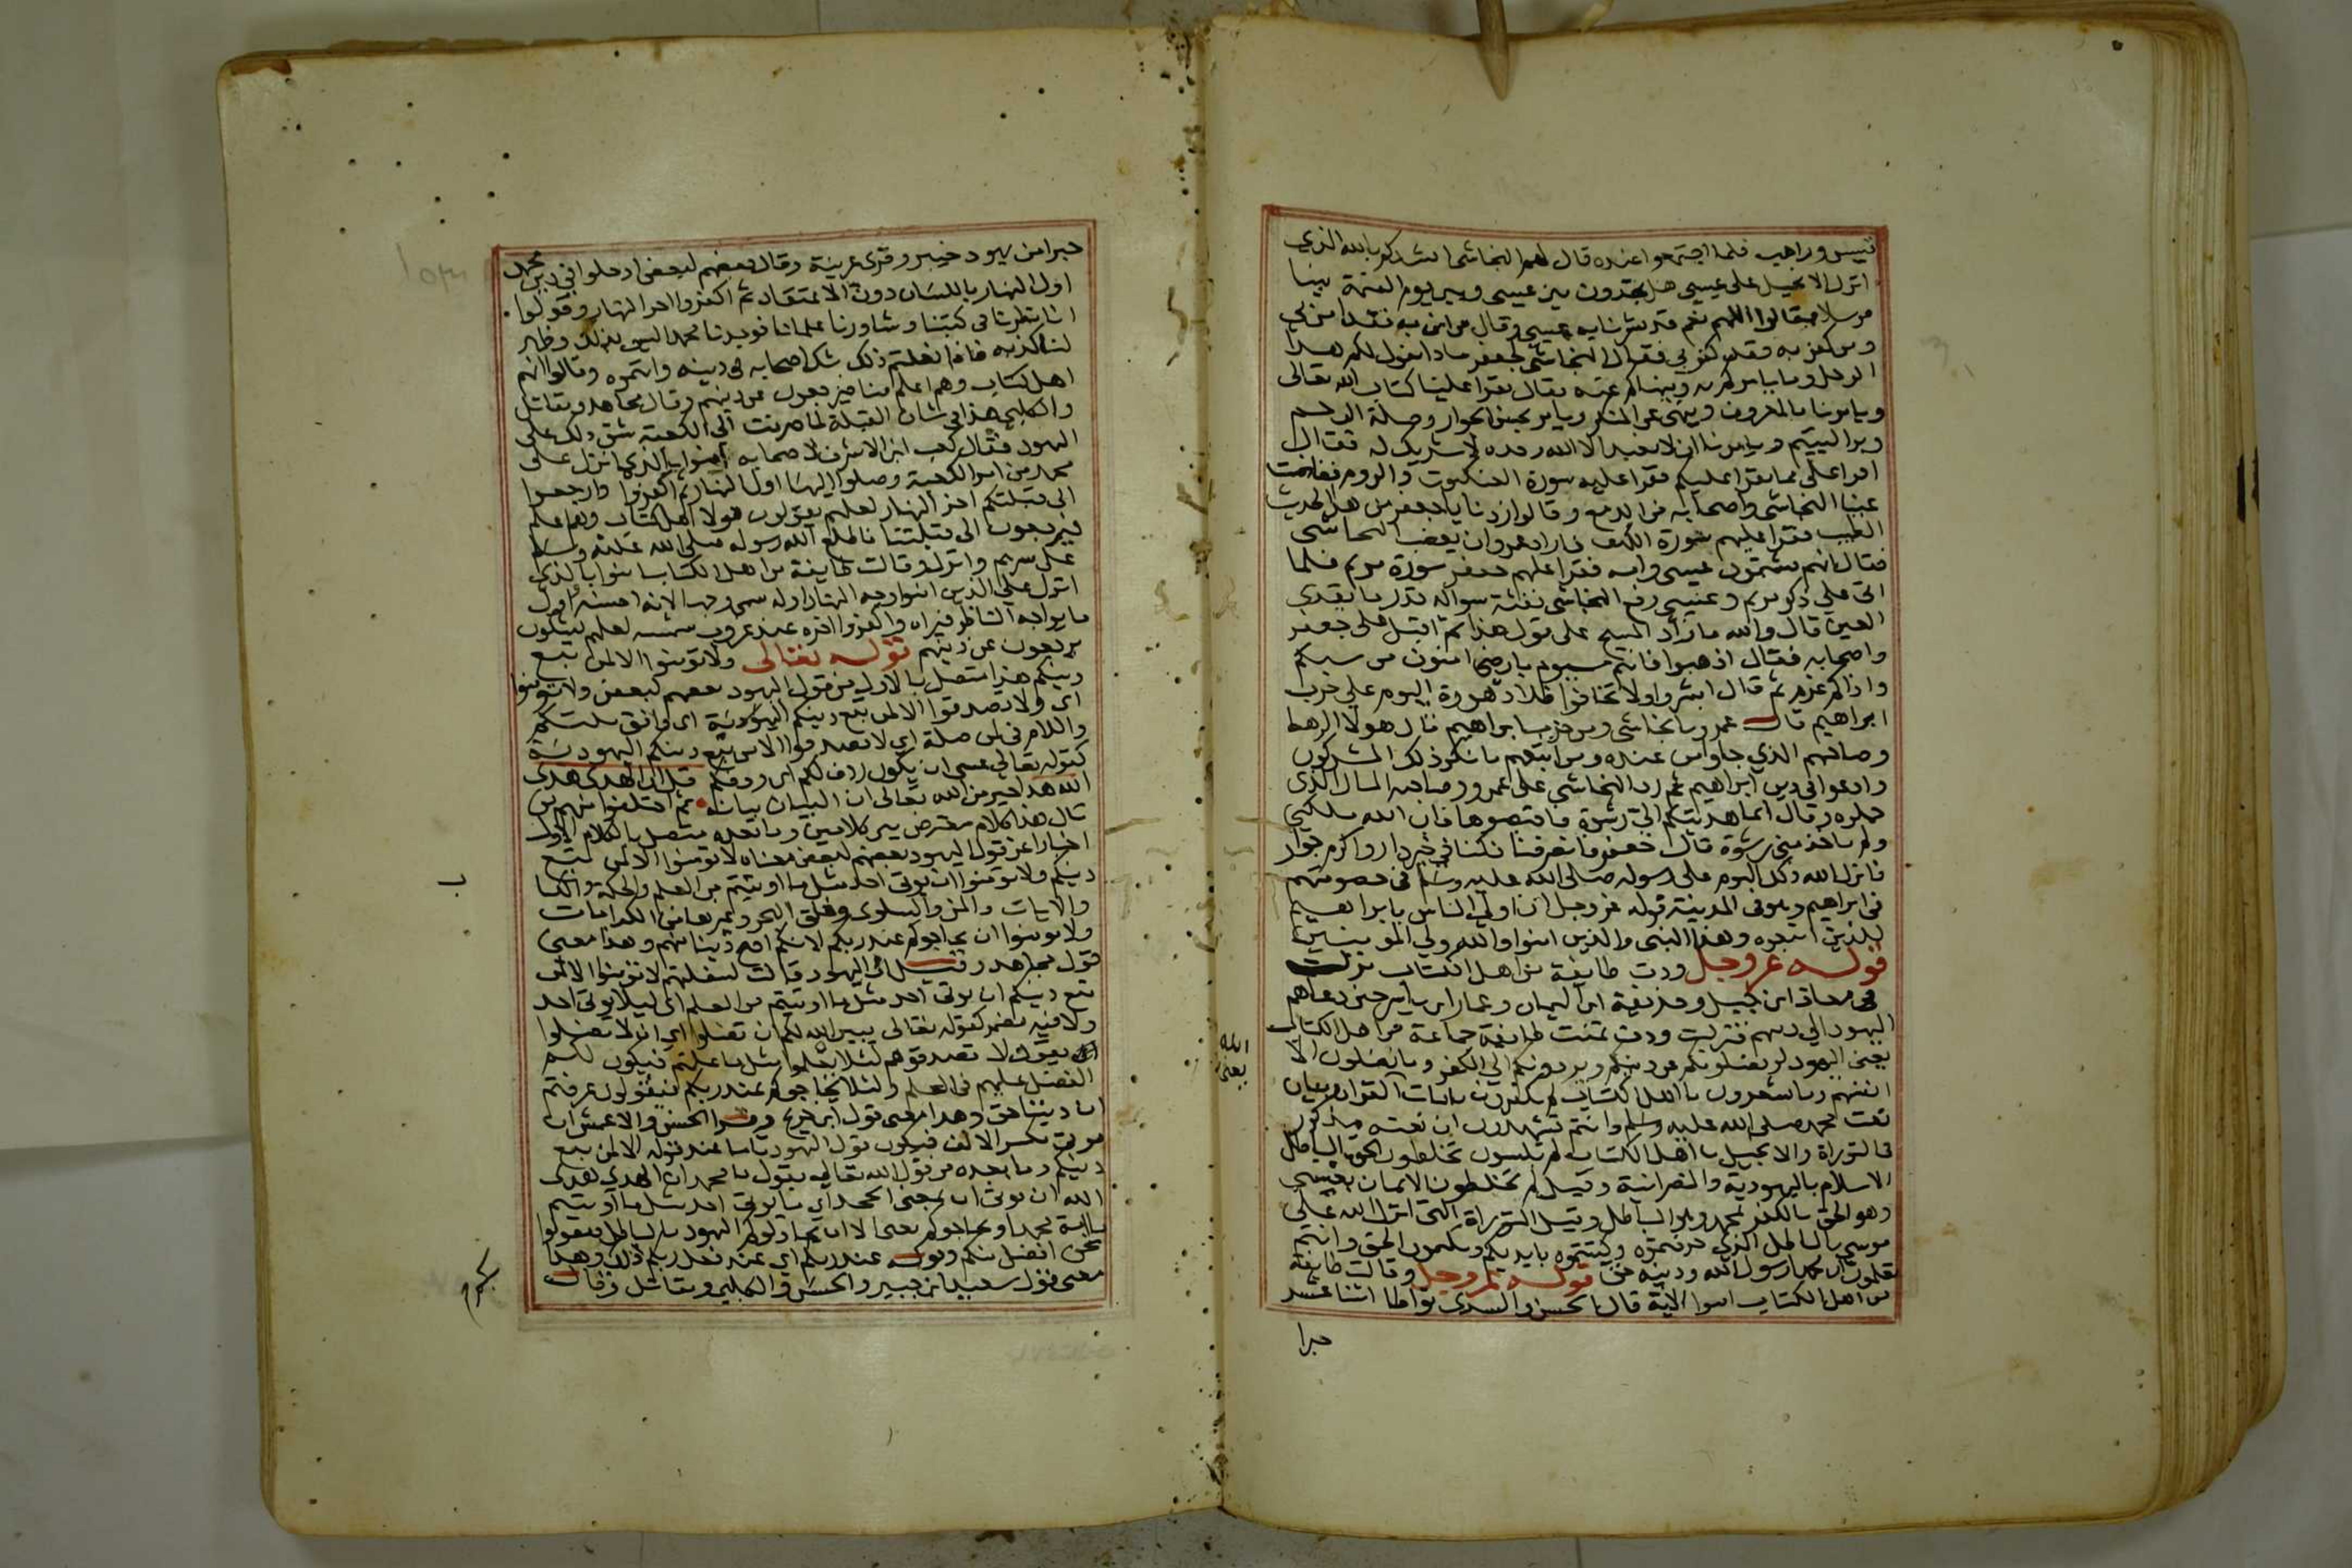 قسيس وراهب فلما اجتمعوا عنده قال لهم النجاشي انشدكم بالله الذي
انزل الانجيل على عيسى هل تجدون بين عيسى وبين يوم القيمة نبيا
مرسلا فقالوا اللهم نعم قد بشرنا به عيسى وقال من امن به فقد امن بي
ومن كفر به فقد كفر بي فقال النجاشي لجعفر ماذا يقول لكم هذا
الرجل وما يامركم به وينهاكم عنه فقال يقرا علينا كتاب الله تعالى
ويامرنا بالمعروف وينهى عن المنكر ويامر بحسن الجوار وصلة الرحم
وبر اليتيم ويامرنا ان لا نعبد الا الله وحده لا شريك له فقال
اقرا علي مما يقرا عليكم فقرا عليه سورة العنكبوت والروم ففاضت
عينا النجاشي واصحابه من الدمع وقالوا زدنا يا جعفر من هذا الحديث
الطيب فقرا عليهم سورة الكهف فاراد عمرو ان يغضب النجاشي
فقال انهم يشتمون عيسى وامه فقرا عليهم جعفر سورة مريم فلما
اتى على ذكر مريم وعيسى رفع النجاشي نفثة سواكه قدر ما يقذي
العين قال والله ما زاد المسيح على قول هذا ثم اقبل على جعفر
واصحابه فقال اذهبوا فانتم سيوم بارضي امنون من سبكم
واذاكم غرم ثم قال ابشروا ولا تخافوا فلا دهورة اليوم على حزب
ابراهيم قال عمرو يا نجاشي ومن حزب ابراهيم قال هولا الرهط
وصاحبهم الذي جاوا من عنده ومن اتبعهم فانكر ذلك المشركون
وادعوا في دين ابراهيم ثم رد النجاشي على عمرو وصاحبه المال الذي
حملوه وقال انما هديتكم الي رشوة فاقبضوها فان الله ملكني
ولم ياخذ مني رشوة قال جعفر فانصرفنا فكنا في خير دار واكرم جوار
فانزل الله ذلك اليوم على رسوله صلى الله عليه وسلم في خصومتهم
في ابراهيم وهو في المدينة قوله عز وجل ان اولى الناس بابراهيم
للذين اتبعوه وهذا النبي والذين امنوا والله ولي المومنين
قوله عز وجل ودت طايفة من اهل الكتاب نزلت
في معاذ ابن جبل وحذيفة ابن اليمان وعمار ابن ياسر حين دعاهم
اليهود الى دينهم فنزلت ودت تمنت طايفة جماعة من اهل الكتاب
يعني اليهود لو يضلونكم عن دينكم ويردونكم الى الكفر وما يضلون الا
انفسهم وما يشعرون يا اهل الكتاب لم تكفرون بايات القران وبيان
نعت محمد صلى الله عليه وسلم وانتم تشهدون ان نعته مذكور
في التوراة والانجيل يا اهل الكتاب لم تلبسون تخلطون الحق بالباطل
الاسلام باليهودية والنصرانية وقيل لم تخلطون الايمان بعيسى
وهو الحق بالكفر بمحمد وهو الباطل وقيل التوراة التي انزل الله على
موسى بالباطل الذي حرفتموه وكتبتموه بايديكم وتكتمون الحق وانتم
تعلمون ان محمدا رسول الله ودينه حق قوله عز وجل وقالت طايفة
من اهل الكتاب امنوا الاية قال الحسن والسدي تواطا اثنا عشر
حبرا
الله
يعني
حبرا من يهود خيبر وقرى عرينة وقال بعضهم لبعض ادخلوا في دين محمد
اول النهار باللسان دون الاعتقاد ثم اكفروا اخر النهار وقولوا
انا نظرنا في كتبنا وشاورنا علمانا فوجدنا محمدا ليس بذلك وظهر
لنا كذبه فاذا فعلتم ذلك شك اصحابه في دينه واتهموه وقالوا انهم
اهل كتاب وهم اعلم منا فيرجعون عن دينهم وقال مجاهد ومقاتل
والكلبي هذا في شان القبلة لما صرفت الى الكعبة شق ذلك على
اليهود فقال كعب ابن الاشرف لاصحابه امنوا بالذي انزل على
محمد من امر الكعبة وصلوا اليها اول النهار ثم اكفروا وارجعوا
الى قبلتكم اخر النهار لعلهم يقولون هولا اهل الكتاب وهم اعلم
فيرجعون الى قبلتنا فاطلع الله رسوله صلى الله عليه وسلم
على سرهم وانزل وقالت طايفة من اهل الكتاب امنوا بالذي
انزل على الذين امنوا وجه النهار اوله سمي وجها لانه احسنه واول
ما يواجه الناظر فيراه واكفروا اخره عند غروب شمسه لعلهم يشكون
يرجعون عن دينهم قوله تعالى ولا تومنوا الا لمن تبع
دينكم هذا متصل بالاول من قول اليهود بعضهم لبعض ولا تومنوا
اي ولا تصدقوا الا لمن تبع دينكم اليهودية اي وافق ملتكم
واللام في لمن صلة اي لا تصدقوا الا من تبع دينكم اليهودية
كقوله تعالى عسى ان يكون ردف لكم اي ردفكم قل ان الهدى هدى
الله هذا خبر من الله تعالى ان البيان بيانه ثم اختلفوا فمنهم من
قال هذا كلام معترض بين كلامين وما بعده متصل بالكلام الاول
اخبارا عن قول اليهود بعضهم لبعض معناه لا تومنوا الا لمن تبع
دينكم ولا تومنوا ان يوتى احد مثل ما اوتيتم من العلم والحكمة والكتاب
والايات والمن والسلوى وفلق البحر وغيرها من الكرامات
ولا تومنوا ان يحاجوكم عند ربكم لانكم اصح دينا منهم وهذا معنى
قول مجاهد وقيل ان اليهود قالت لسفلتهم لا تومنوا الا لمن
تبع دينكم ان يوتى احد مثل ما اوتيتم من العلم اي ليلا يوتى احد
ولا فيه مضمر كقوله تعالى يبين الله لكم ان تضلوا اي ان لا تضلوا
يقول لا تصدقوهم لئلا يعلموا مثل ما علمتم فيكون لكم
الفضل عليهم في العلم ولئلا يحاجوكم عند ربكم فيقولون عرفتم
ان ديننا حق وهذا معنى قول ابن جريج وقرا الحسن والاعمش ان
يوتى بكسر الالف فيكون قول اليهود تاما عند قوله الا لمن تبع
دينكم وما بعده من قول الله تعالى يقول يا محمد ان الهدى هدى
الله ان يوتى ان بمعنى الجحد اي ما يوتى احد مثل ما اوتيتم
يا امة محمد او يحاجوكم يعني الا ان يجادلوكم اليهود بالباطل فيقولوا
نحن افضل منكم وقوله عند ربكم اي عند فعل ربكم ذلك وهذا
معنى قول سعيد ابن جبير والحسن والكلبي ومقاتل وقال
ب